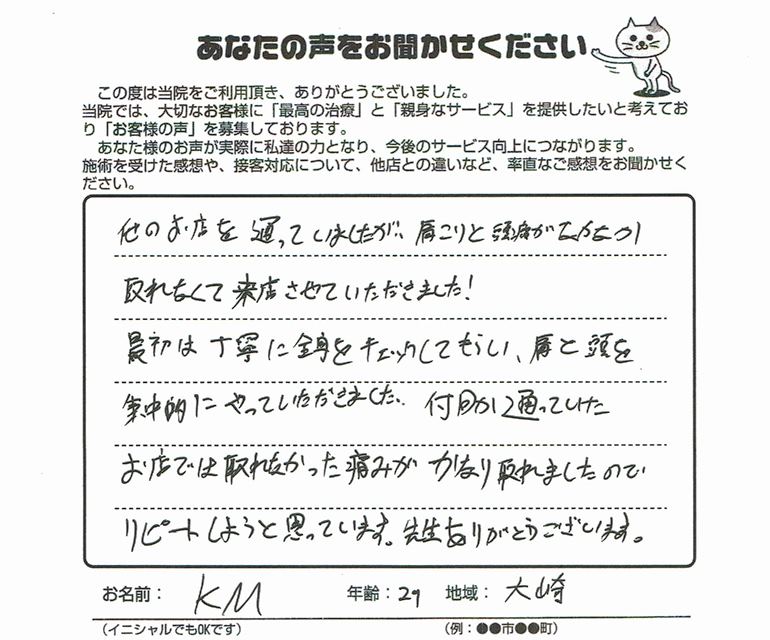 あなたの声をお聞かせください
この度は当院をご利用頂き、ありがとうございました。
当院では、大切なお客様に「最高の治療」と「親身なサービス」を提供したいと考えてお
り「お客様の声」を募集しております。
あなた様のお声が実際に私達の力となり、今後のサービス向上につながります。
施術を受けた感想や、接客対応について、他店との違いなど、率直なご感想をお聞かせく
ださい。
他のお店を通っていましたが、肩こりと頭痛がなかなか
取れなくて来店させていただきました!
最初は丁寧に全身をチェックしてもらい、肩と頭を
集中的にやっていただきました。 何回か通っていた
お店では取れなかった痛みがかなり取れましたので
リピートしようと思っています。先生ありがとうございます。
お名前: KM 年齢:29 地域: 大崎
(イニシャルでもOKです) (例:●●市●●町)